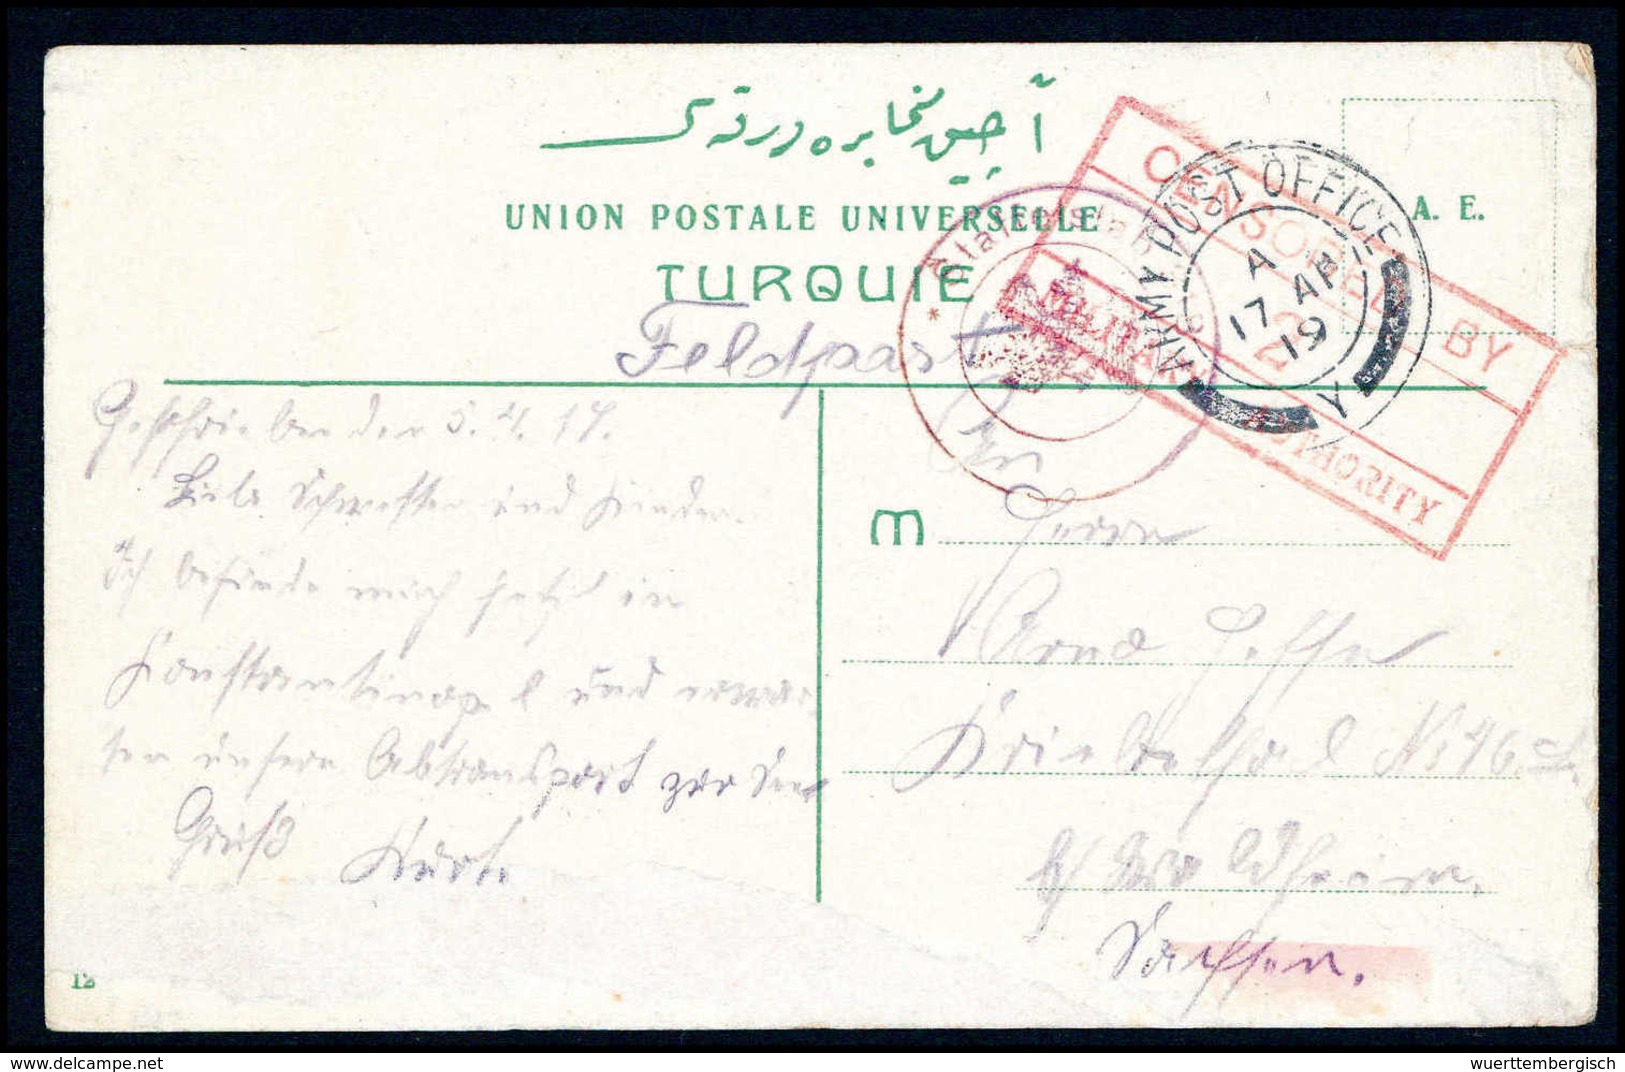 آچیق مخابره ورقه سی
UNION POSTALE UNIVERSELLE
TURQUIE
A. E.
CENSORED BY
2
MILITARY AUTHORITY
ARMY POST OFFICE
A
17 AP
19
Y
Feldpost
Geschrieben den 5. 4. 19.
Liebe Schwester und Kinder.
Ich befinde mich jetzt in
Konstantinopel und erwar-
ten unsern Abtransport zur See
Gruß Kurt.
An
M Herrn
Arno
Kriebethal No 46
b/ Waldheim.
Sachsen.
12
wuerttembergisch